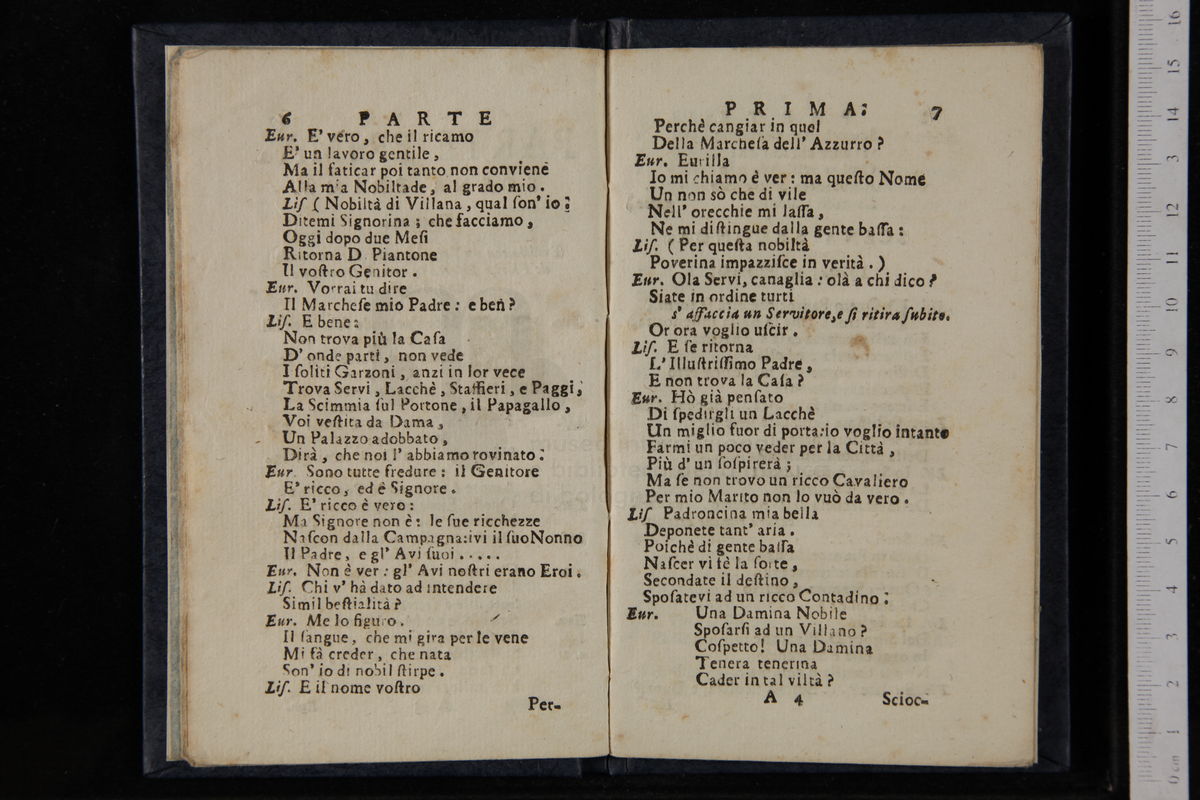 6 PARTE
Eur. E' vero, che il ricamo
E' un lavoro gentile,
Ma il faticar poi tanto non conviene
Alla mia Nobiltade, al grado mio.
Liſ ( Nobiltà di Villana, qual ſon' io:
Ditemi Signorina; che facciamo,
Oggi dopo due Meſi
Ritorna D. Piantone
Il voſtro Genitor.
Eur. Vorrai tu dire
Il Marcheſe mio Padre: e ben?
Liſ. E bene:
Non trova più la Caſa
D' onde partì, non vede
I ſoliti Garzoni, anzi in lor vece
Trova Servi, Lacchè, Staffieri, e Paggi,
La Scimmia ſul Portone, il Papagallo,
Voi veſtita da Dama,
Un Palazzo adobbato,
Dirà, che noi l' abbiamo rovinato:
Eur. Sono tutte fredure: il Genitore
E' ricco, ed è Signore.
Liſ. E' ricco è vero:
Ma Signore non è: le ſue ricchezze
Naſcon dalla Campagna:ivi il ſuoNonno
Il Padre, e gl' Avi ſuoi.....
Eur. Non è ver: gl' Avi noſtri erano Eroi.
Liſ. Chi v' hà dato ad intendere
Simil beſtialità?
Eur. Me lo figuro.
Il ſangue, che mi gira per le vene
Mi fà creder, che nata
Son' io di nobil ſtirpe.
Liſ. E il nome voſtro
Per-
PRIMA: 7
Perchè cangiar in quel
Della Marcheſa dell' Azzurro?
Eur. Eurilla
Io mi chiamo è ver: ma queſto Nome
Un non sò che di vile
Nell' orecchie mi laſſa,
Ne mi diſtingue dalla gente baſſa:
Liſ. ( Per queſta nobiltà
Poverina impazziſce in verità. )
Eur. Ola Servi, canaglia: olà a chi dico?
Siate in ordine turti
s' affaccia un Servitore,e ſi ritira ſubito.
Or ora voglio uſcir.
Liſ. E ſe ritorna
L' Illuſtriſſimo Padre,
E non trova la Caſa?
Eur. Hò già penſato
Di ſpedirgli un Lacchè
Un miglio fuor di porta:io voglio intanto
Farmi un poco veder per la Città,
Più d' un ſoſpirerà;
Ma ſe non trovo un ricco Cavaliero
Per mio Marito non lo vuò da vero.
Liſ Padroncina mia bella
Deponete tant' aria.
Poichè di gente baſſa
Naſcer vi fè la ſorte,
Secondate il deſtino,
Spoſatevi ad un ricco Contadino:
Eur. Una Damina Nobile
Spoſarſi ad un Villano?
Coſpetto! Una Damina
Tenera tenerina
Cader in tal viltà?
A 4 Scioc-